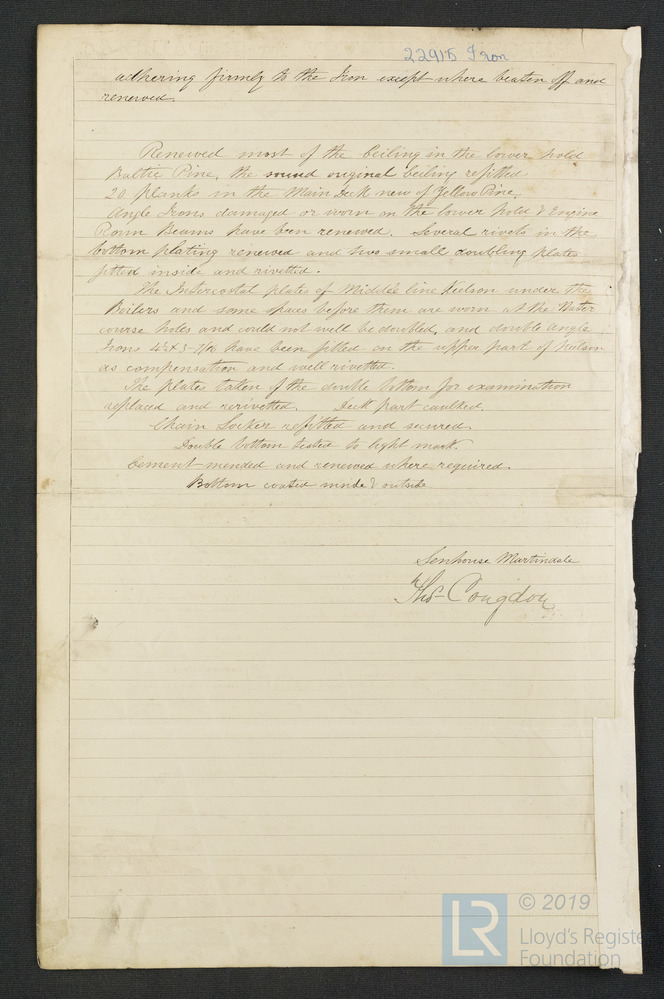 22915 Iron
adhering firmly to the Iron except where beaten off and
renewed.
Renewed most of the Ceiling in the lower hold
Baltic Pine, the sound original Ceiling refitted
20 planks in the Main Deck new of Yellow Pine.
Angle Irons damaged or worn on the lower hold & Engine
Room Beams have been renewed. Several rivets in the
bottom plating renewed and two small doubling plates
fitted inside and rivetted.
The Intercostal plates of Middle line Keelson under the
Boilers and some spaces before them are worn at the Water
course holes and could not well be doubled, and double angle
Irons 4½ x 3 - 7/16 have been fitted on the upper part of Keelson
as compensation and well rivetted.
The plates taken off the double bottom for examination
replaced and rerivetted. Deck part caulked.
Chain Locker refitted and secured.
Double bottom tested to light mark.
Cement mended and renewed where required.
Bottom coated inside & outside
Senhouse Martindale
Thos Congdon
LR © 2019
Lloyd's Registe
Foundation